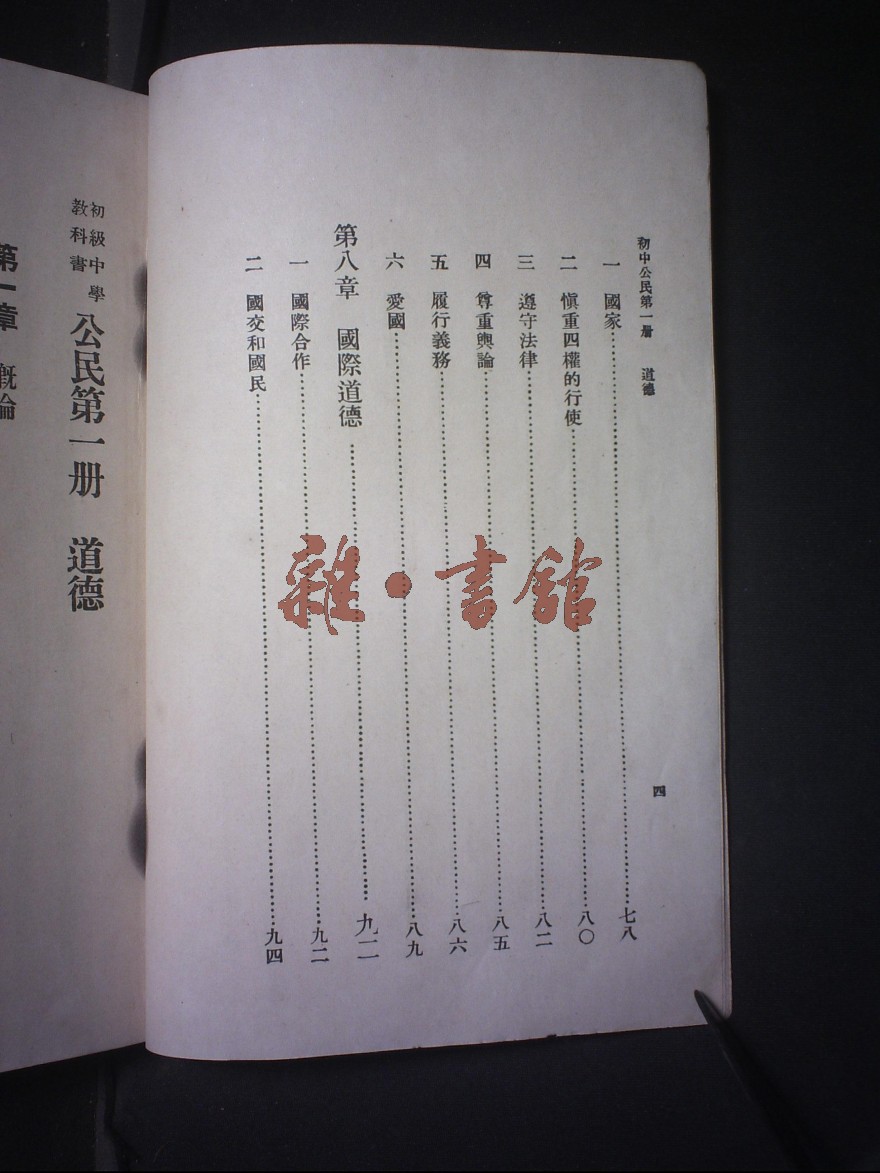 初中公民第一册　道德
四
一　國家……七八
二　愼重四權的行使……八〇
三　遵守法律……八二
四　尊重輿論……八五
五　履行義務……八六
六　愛國……八九
第八章　國際道德……九二
一　國際合作……九二
二　國交和國民……九四
雜·書館
初級中學
教科書
公民第一册　道德
第一章　概論